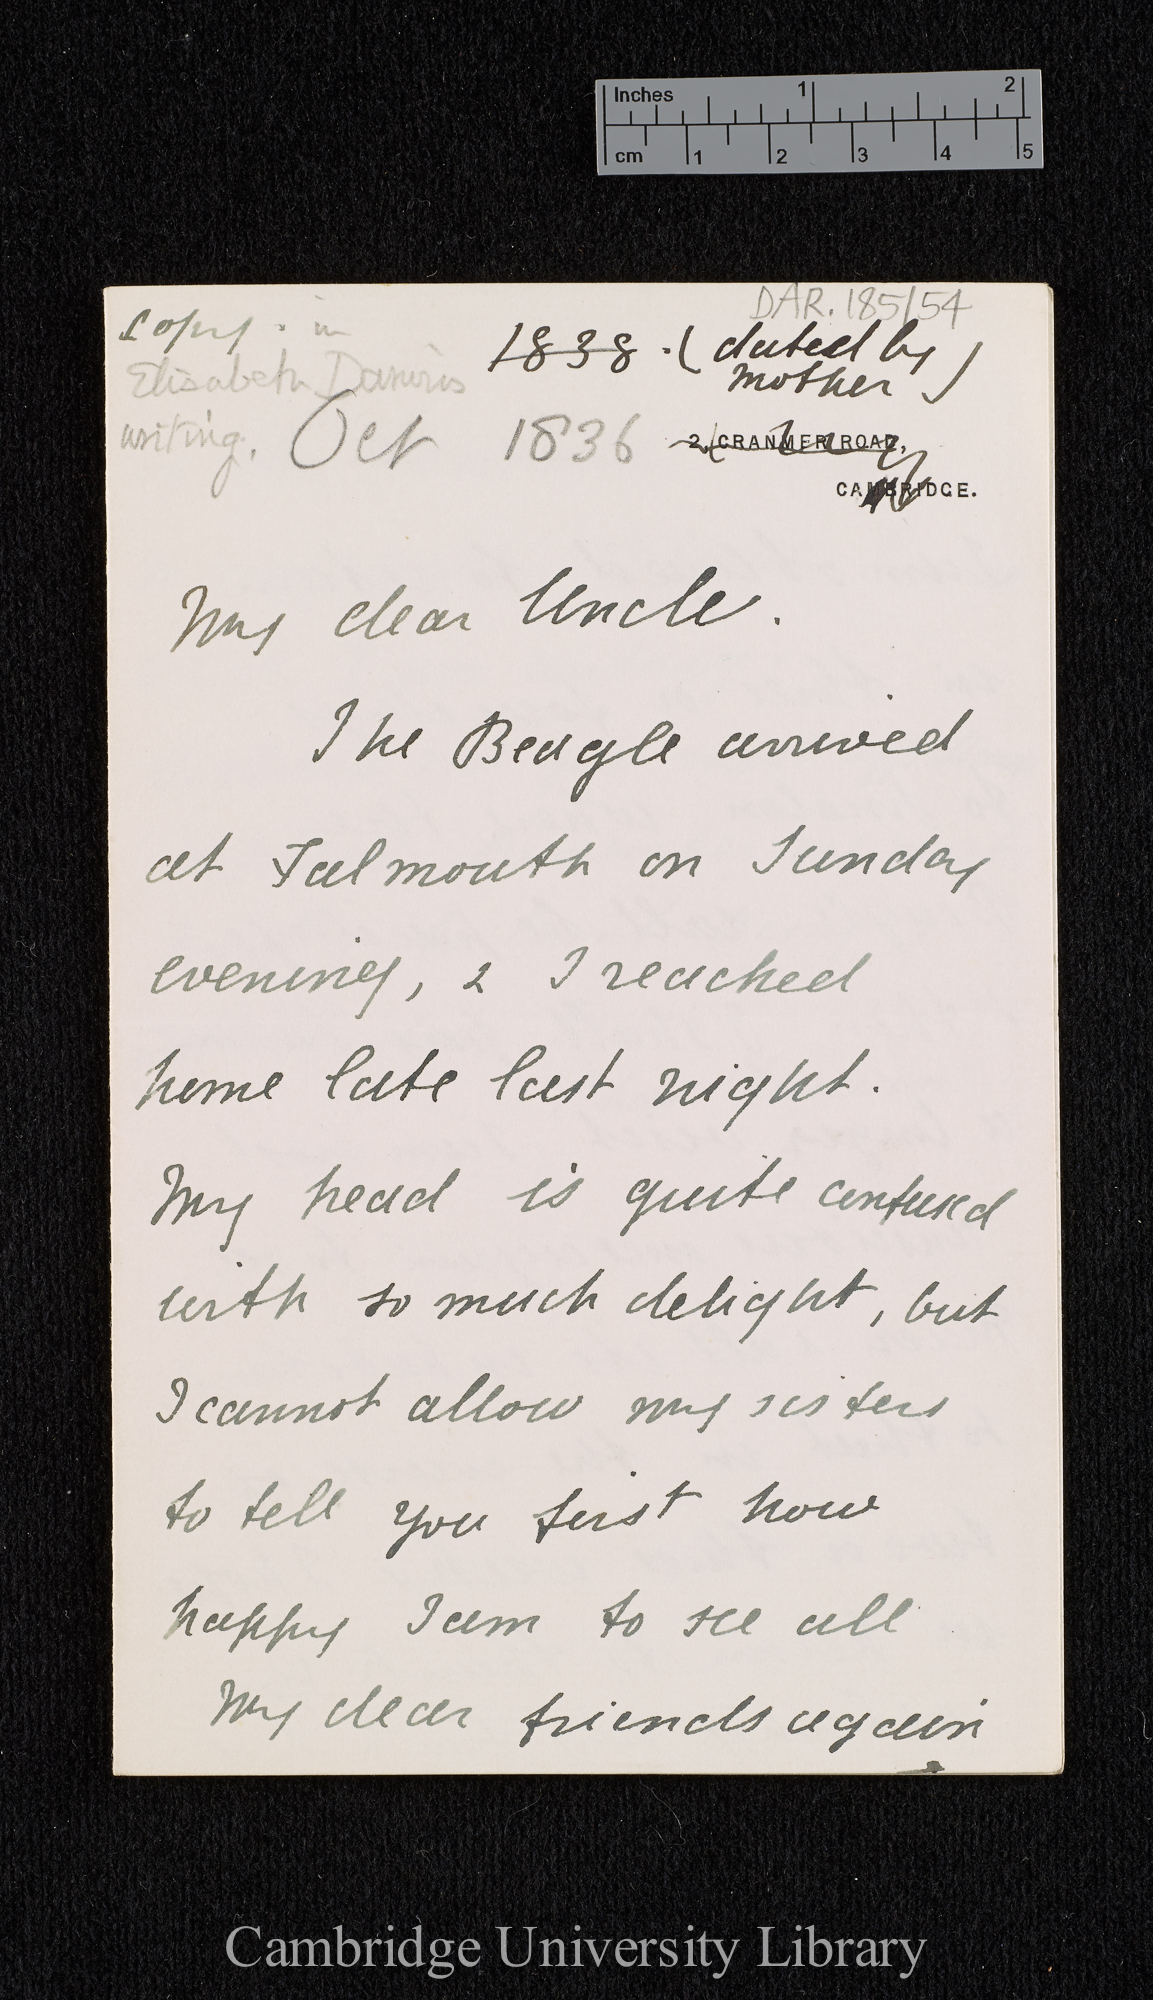 Inches 1 2
cm 1 2 3 4 5
DAR. 185/54
Copy. in
Elisabeth Darwin's
writing.
1838. (dated by
mother)
Oct 1836
2, CRANMER ROAD,
CAMBRIDGE.
My dear Uncle.
The Beagle arrived
at Falmouth on Sunday
evening, & I reached
home late last night.
My head is quite confused
with so much delight, but
I cannot allow my sisters
to tell you first how
happy I am to see all
my dear friends again
Cambridge University Library